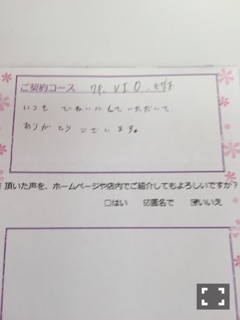 ご契約コース ワキ、VIO、ヒザ下
いつも ていねいに していただいて
ありがとうございます。
頂いた声を、ホームページや店内でご紹介してもよろしいですか?
□はい ☑匿名で ☑いいえ